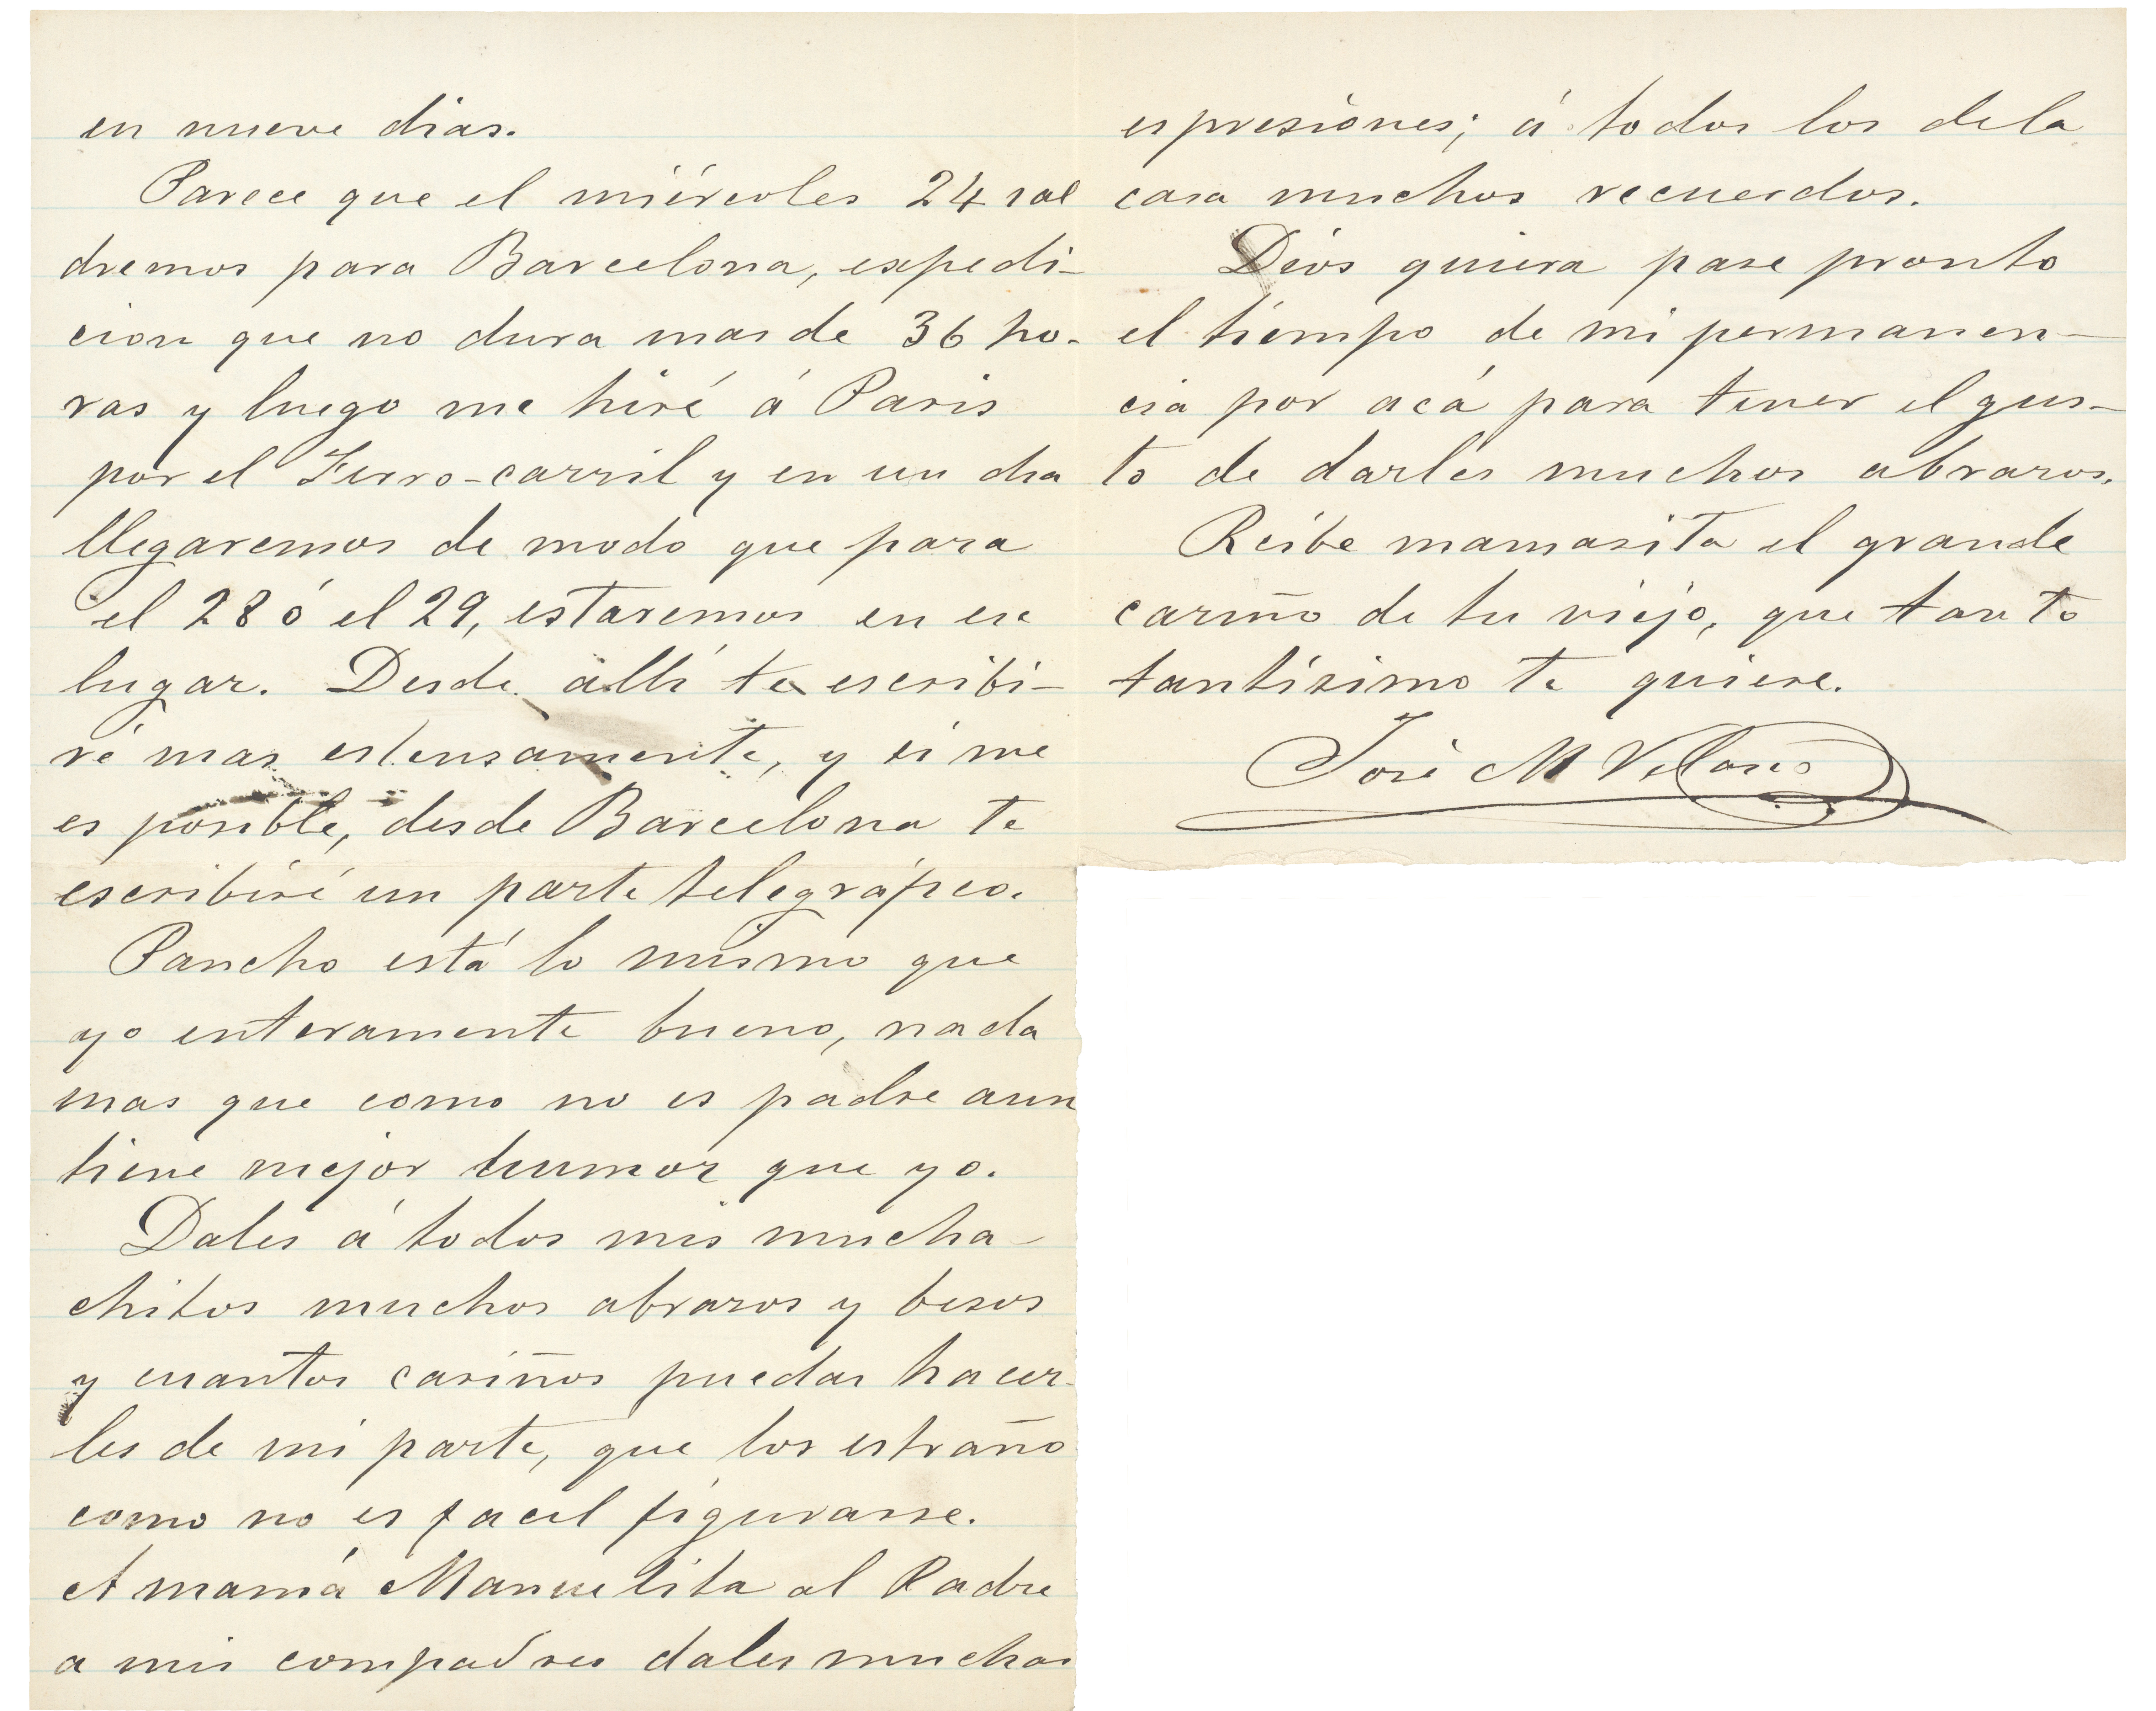 en nueve dias.
Parece que el miércoles 24 sal
dremos para Barcelona, espedi-
cion que no dura mas de 36 ho-
ras y luego me hiré á Paris
por el Ferro-carril y en un dia
llegaremos de modo que para
el 28 ó el 29, estaremos en ese
lugar. Desde allí te escribi-
ré mas estensamente, y si me
es posible, desde Barcelona te
escribiré un parte telegráfico.
Pancho está lo mismo que
yo enteramente bueno, nada
mas que como no es padre aun
tiene mejor humor que yo.
Dales á todos mis mucha-
chitos muchos abrazos y besos
y cuantos cariños puedas hacer-
les de mi parte, que los estraño
como no es facil figurarse.
A mamá Manuelita al Padre
a mis compadres dales muchas
espresiones; á todos los de la
casa muchos recuerdos.
Dios quiera pase pronto
el tiempo de mi permanen-
cia por acá para tener el gus-
to de darles muchos abrazos.
Reibe mamasita el grande
cariño de tu viejo, que tanto
tantísimo te quiere.
José M Velasco